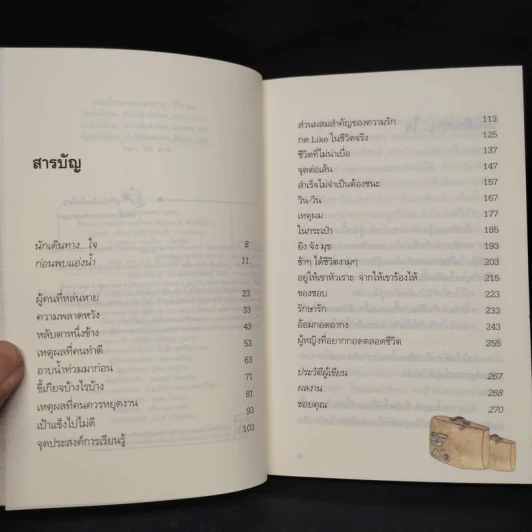 สารบัญ
นักเดินทาง...ใจ 8
ก่อนพบแอ่งน้ำ 11
ผู้คนที่หล่นหาย 23
ความพลาดหวัง 33
หลับตาหนึ่งข้าง 43
เหตุผลที่คนทำดี 53
อาบน้ำท่วมมาก่อน 63
ขี้เกียจบ้างไรบ้าง 71
เหตุผลที่คนควรหยุดงาน 81
เป้าแข็งไปไม่ดี 93
จุดประสงค์การเรียนรู้ 103
ส่วนผสมสำคัญของความรัก 113
กด Like ในชีวิตจริง 125
ชีวิตที่ไม่น่าเบื่อ 137
จุดต่อเส้น 147
สำเร็จไม่จำเป็นต้องชนะ 157
วิน-วิน 167
เหตุผม 177
ในกระเป๋า 185
ยิง จัง มุข 193
ช้าๆ ได้ชีวิตงามๆ 203
อยู่ให้เขาหัวเราะ จากให้เขาร้องไห้ 215
ของชอบ 223
รักษารัก 233
อ้อมกอดอากง 243
ผู้หญิงที่อยากกอดตลอดชีวิต 255
ประวัติผู้เขียน 267
ผลงาน 268
ขอบคุณ 270